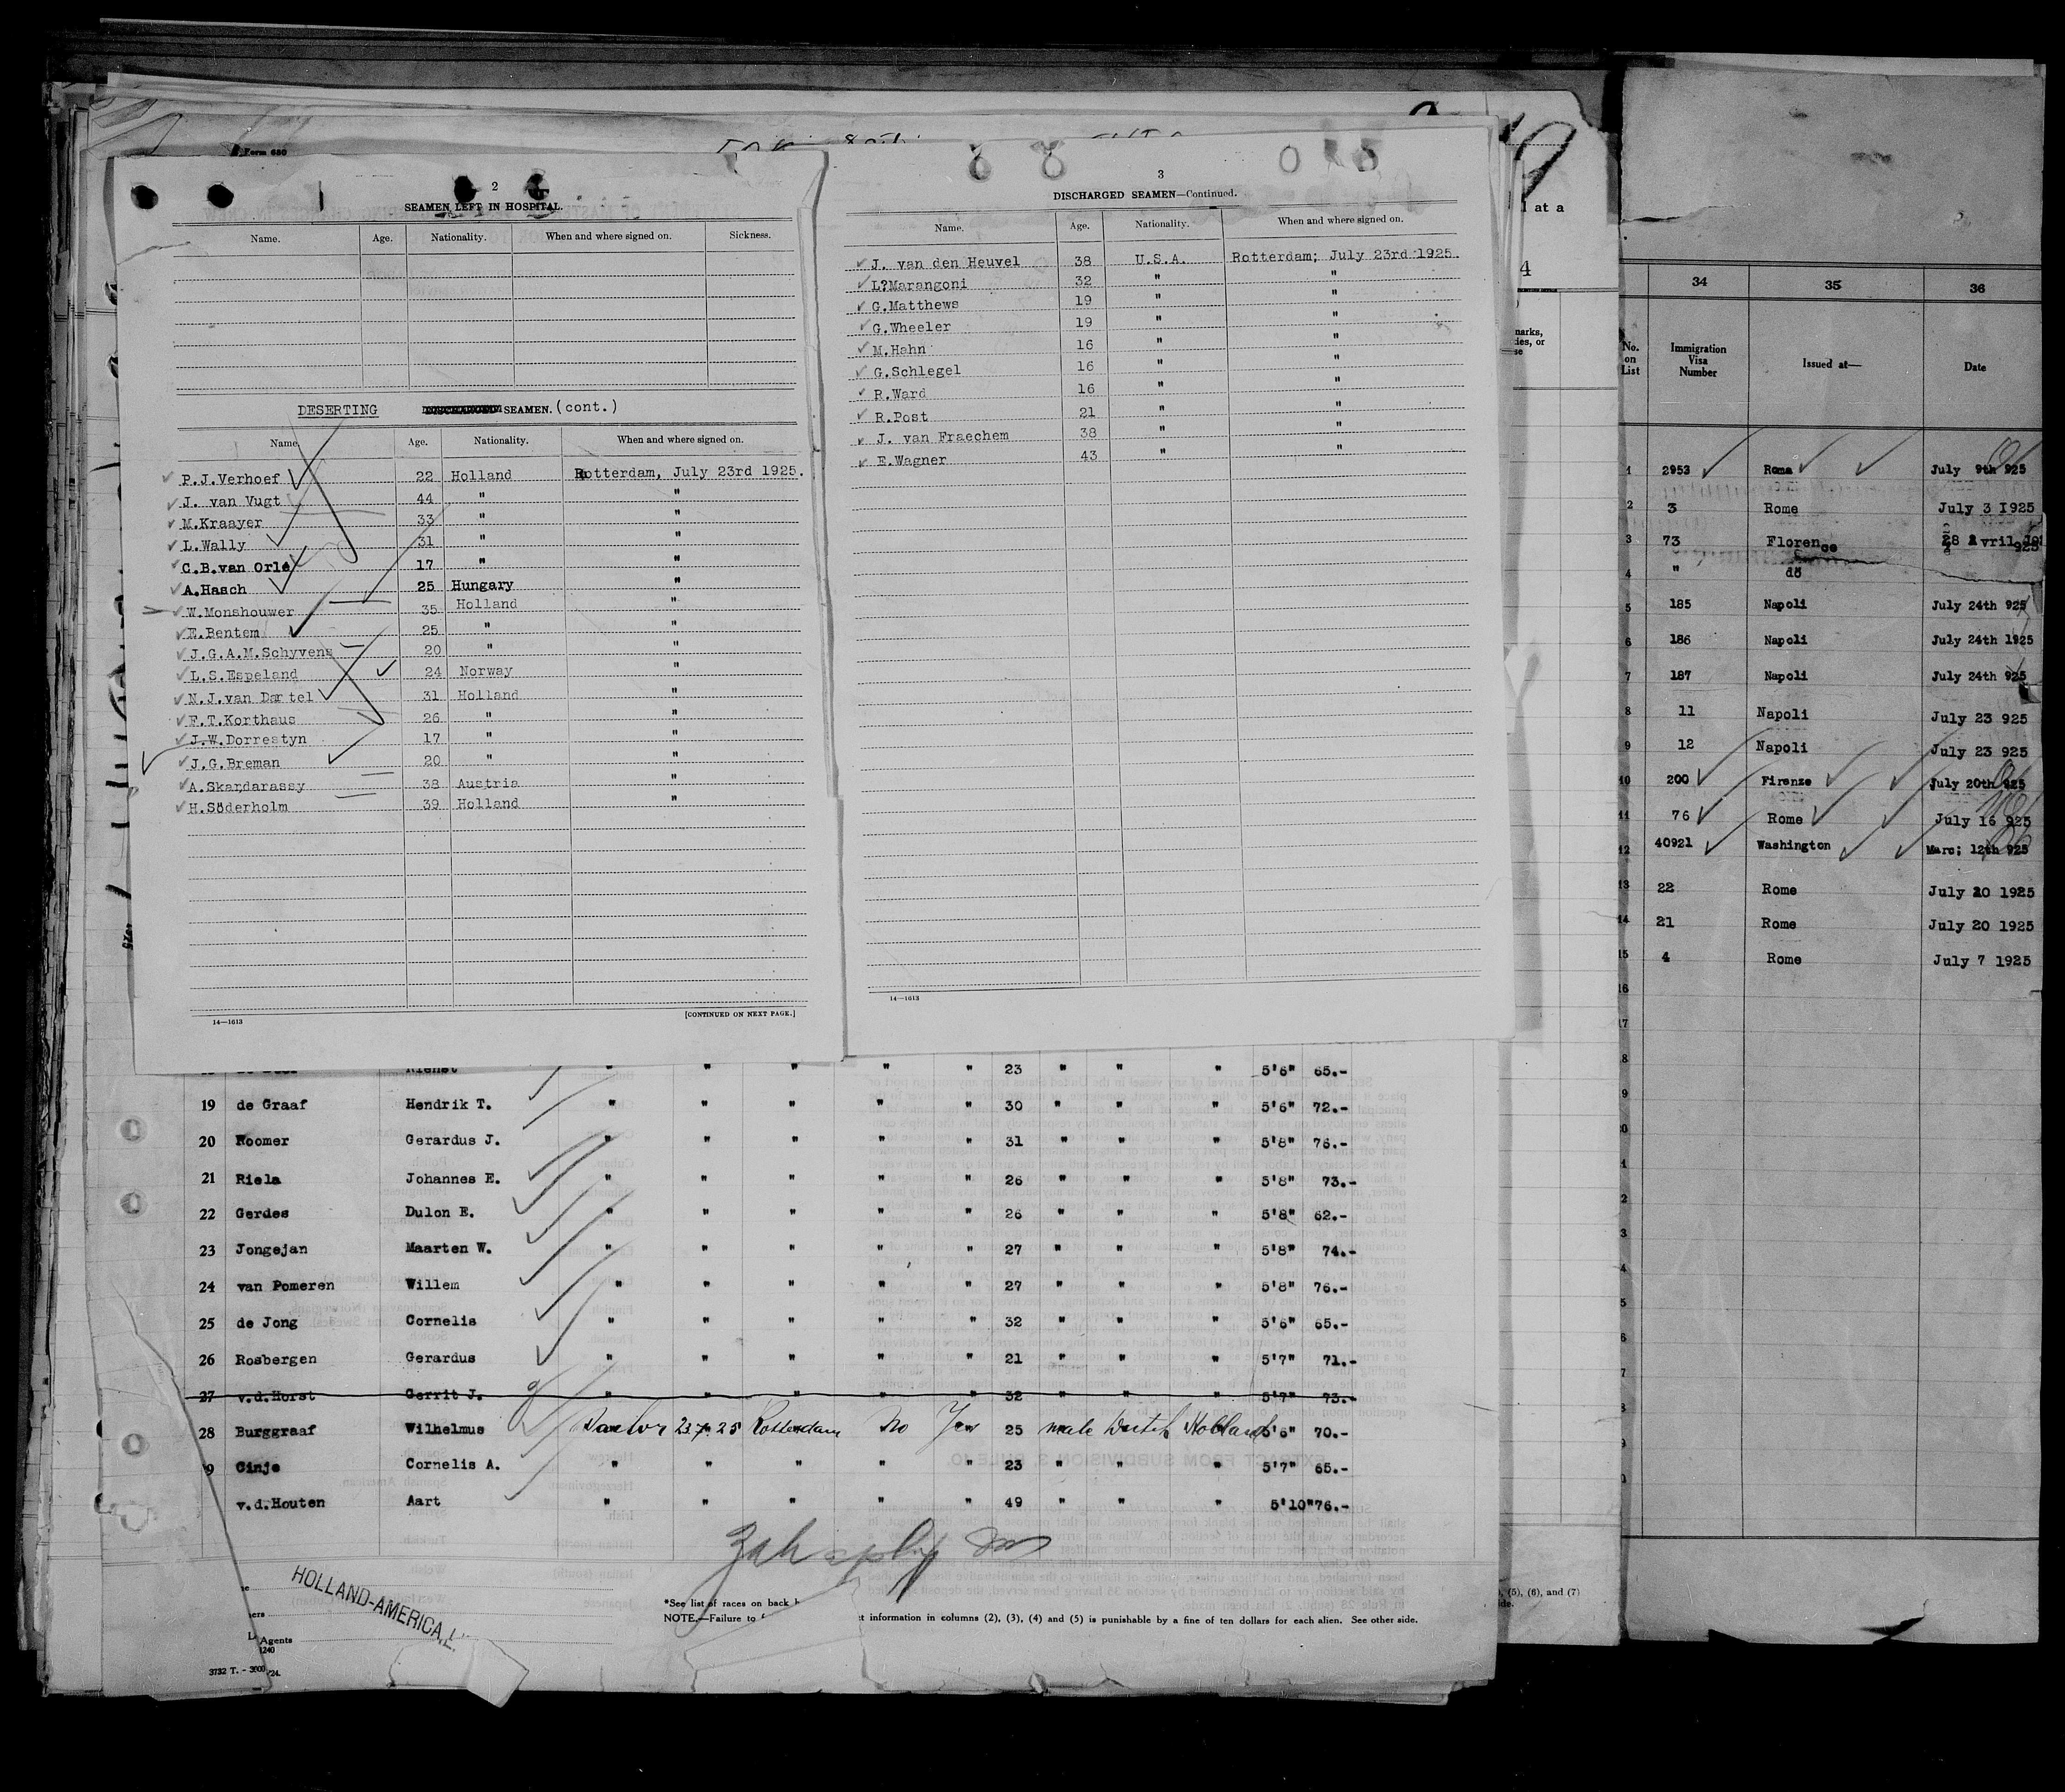 Form 680
2
SEAMEN LEFT IN HOSPITAL.
Name. Age. Nationality. When and where signed on. Sickness.
DESERTING SEAMEN. (cont.)
Name. Age. Nationality. When and where signed on.
P.J.Verhoef 22 Holland Rotterdam, July 23rd 1925.
J. van Vugt 44 " "
M.Kraayer 33 " "
L.Wally 31 " "
C.B.van Orle 17 " "
A.Hasch 25 Hungary "
W.Monshouwer 35 Holland "
E.Bentem 25 " "
J.G.A.M.Schyvens 20 " "
L.S.Espeland 24 Norway "
N.J.van Dartel 31 Holland "
F.T.Korthaus 26 " "
J.W.Dorrestyn 17 " "
J.G.Breman 20 " "
A.Skandarassy 38 Austria "
H.Söderholm 39 Holland "
14—1613
[CONTINUED ON NEXT PAGE.]
3
DISCHARGED SEAMEN—Continued.
Name. Age. Nationality. When and where signed on.
J. van den Heuvel 38 U.S.A. Rotterdam; July 23rd 1925.
L?Marangoni 32 " "
G.Matthews 19 " "
G.Wheeler 19 " "
M.Hahn 16 " "
G.Schlegel 16 " "
R.Ward 16 " "
R.Post 21 " "
J. van Fraechem 38 " "
E.Wagner 43 " "
14—1613
23 " " " 5'6" 65.-
19 de Graaf Hendrik T. " " " " " 30 " " " 5'6" 72.-
20 Roomer Gerardus J. " " " " " 31 " " " 5'8" 76.-
21 Riela Johannes E. " " " " " 26 " " " 5'8" 73.-
22 Gerdes Dulon E. " " " " " 26 " " " 5'8" 62.-
23 Jongejan Maarten W. " " " " " 27 " " " 5'8" 74.-
24 van Pomeren Willem " " " " " 27 " " " 5'8" 76.-
25 de Jong Cornelis " " " " " 32 " " " 5'6" 65.-
26 Rosbergen Gerardus " " " " " 21 " " " 5'7" 71.-
27 v.d.Horst Gerrit J. " " " " " 32 " " " 5'7" 73.-
28 Burggraaf Wilhelmus 23.7.25 Rotterdam No Yes 25 male Dutch Holland 5'6" 70.-
9 Cinje Cornelis A. " " " " " 23 " " " 5'7" 65.-
v.d.Houten Aart " " " " " 49 " " " 5'10" 76.-
HOLLAND-AMERICA
Agents
1240
3732 T. - 3000 '24.
*See list of races on back
NOTE.—Failure to information in columns (2), (3), (4) and (5) is punishable by a fine of ten dollars for each alien. See other side.
at a
4
(5), (6), and (7)
34 35 36
No. on List Immigration Visa Number Issued at— Date
1 2953 Roma July 9th 925
2 3 Rome July 3 1925
3 73 Florence 28 Avril 925
4 " dö
5 185 Napoli July 24th 925
6 186 Napoli July 24th 1925
7 187 Napoli July 24th 925
8 11 Napoli July 23 925
9 12 Napoli July 23 925
10 200 Firenze July 20th 925
11 76 Rome July 16 925
12 40921 Washington Marc; 12th 925
13 22 Rome July 20 1925
14 21 Rome July 20 1925
15 4 Rome July 7 1925
16
17
8
9